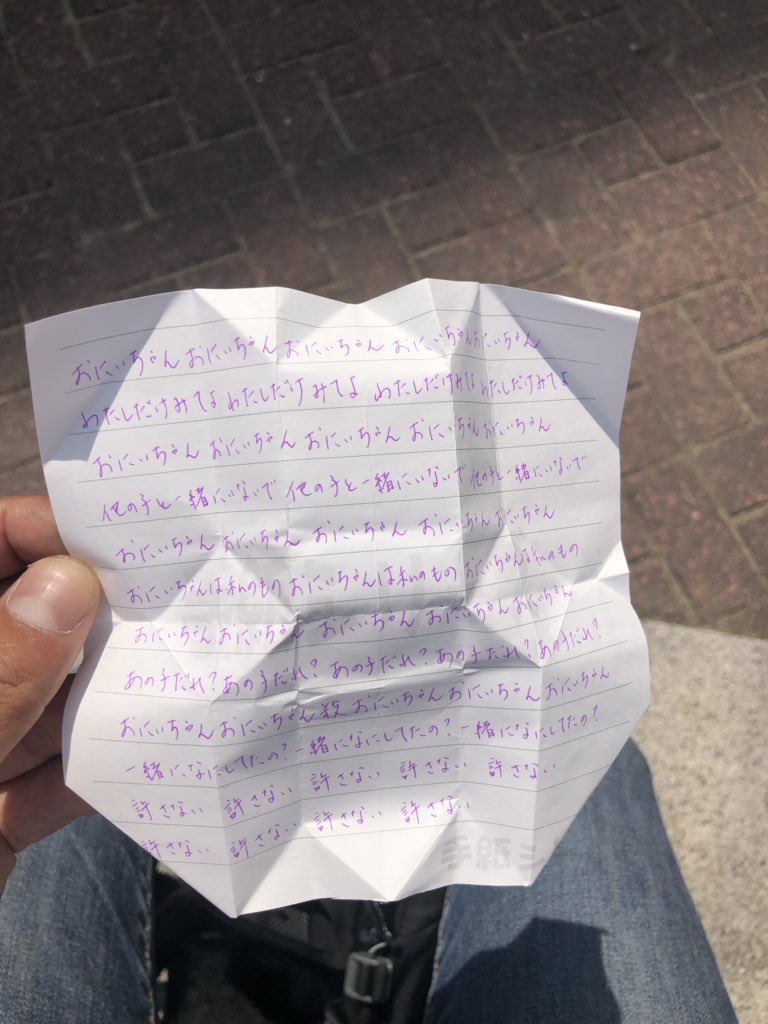 おにいちゃん おにいちゃん おにいちゃん おにいちゃん おにいちゃん
わたしだけみてよ わたしだけみてよ わたしだけみてよ わたしだけみてよ
おにいちゃん おにいちゃん おにいちゃん おにいちゃん おにいちゃん
他の子と一緒にいないで 他の子と一緒にいないで 他の子と一緒にいないで
おにいちゃん おにいちゃん おにいちゃん おにいちゃん おにいちゃん
おにいちゃんは私のもの おにいちゃんは私のもの おにいちゃんは私のもの
おにいちゃん おにいちゃん おにいちゃん おにいちゃん おにいちゃん
あの子だれ?あの子だれ? あの子だれ?あの子だれ?あの子だれ?
おにいちゃん おにいちゃん 殺 おにいちゃん おにいちゃん おにいちゃん
一緒になにしてたの?一緒になにしてたの?一緒になにしてたの?
許さない 許さない 許さない 許さない 許さない
許さない 許さない 許さない 許さない